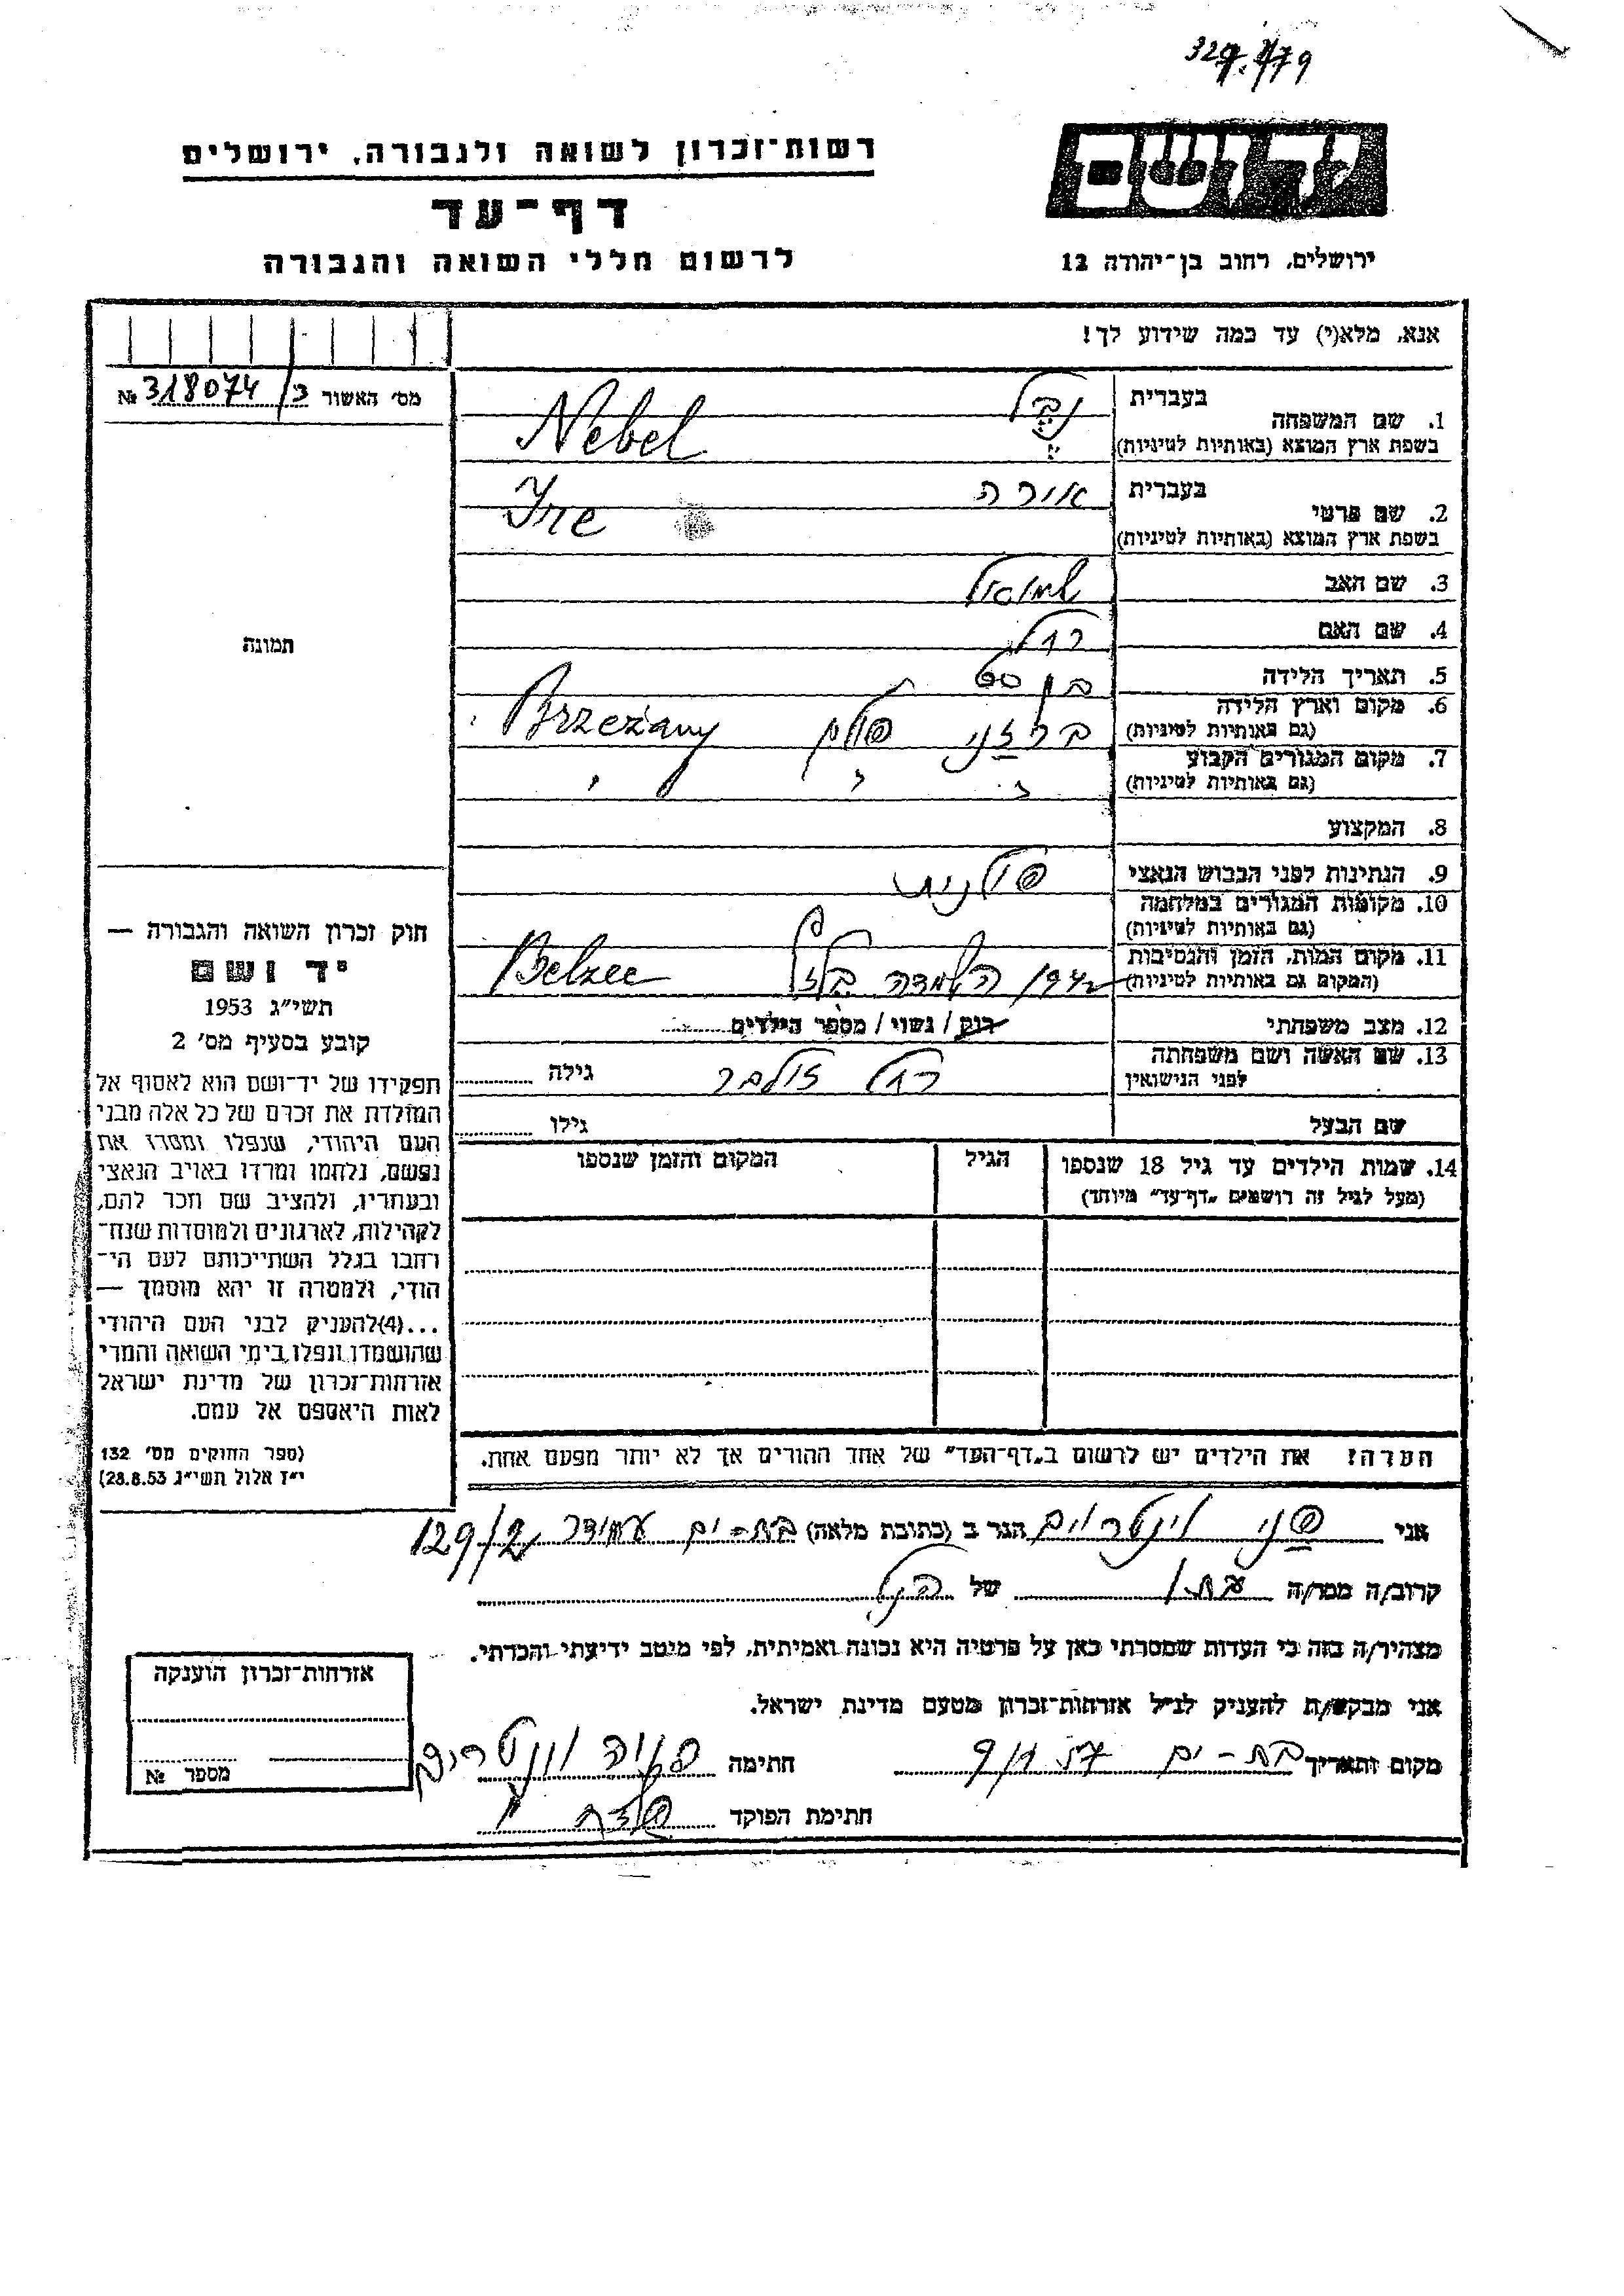 רשות-זכרון לשואה ולגבורה, ירושלים
יד ושם
דף-עד
לרשום חללי השואה והגבורה
ירושלים, רחוב בן-יהודה 12
אנא, מלא(י) עד כמה שידוע לך!
מס׳ האשור № 318074
1. שם המשפחה
בעברית
בשפת ארץ המוצא (באותיות לטיניות)
Nebel
2. שם פרטי
בעברית
בשפת ארץ המוצא (באותיות לטיניות)
Ire
3. שם האב שמואל
4. שם האם רחל
5. תאריך הלידה בן
6. מקום וארץ הלידה
(גם באותיות לטיניות)
פולין Brzeżany
7. מקום המגורים הקבוע
(גם באותיות לטיניות)
8. המקצוע
9. הנתינות לפני הכבוש הנאצי פולנית
10. מקומות המגורים במלחמה
(גם באותיות לטיניות)
11. מקום המות, הזמן והנסיבות
(המקום גם באותיות לטיניות)
1942 השמדה Belzec
12. מצב משפחתי רווק / נשוי / מספר הילדים
13. שם האשה ושם משפחתה
לפני הנישואין
רחל גילה
שם הבעל גילו
14. שמות הילדים עד גיל 18 שנספו
(מעל לגיל זה רושמים "דף-עד" מיוחד)
הגיל
המקום והזמן שנספו
הערה! את הילדים יש לרשום ב"דף-העד" של אחד ההורים אך לא יותר מפעם אחת.
תמונה
חוק זכרון השואה והגבורה —
יד ושם
תשי״ג 1953
קובע בסעיף מס׳ 2
תפקידו של יד-ושם הוא לאסוף אל
המולדת את זכרם של כל אלה מבני
העם היהודי, שנפלו ומסרו את
נפשם, נלחמו ומרדו באויב הנאצי
ובעוזריו, ולהציב שם וזכר להם,
לקהילות, לארגונים ולמוסדות שנח-
רבו בגלל השתייכותם לעם הי-
הודי, ולמטרה זו יהא מוסמך —
...(4)להעניק לבני העם היהודי
שהושמדו ונפלו בימי השואה והמרי
אזרחות-זכרון של מדינת ישראל
לאות היאספם אל עמם.
(ספר החוקים מס׳ 132
י״ז אלול תשי״ג 28.8.53)
אני פני וינטרוים הגר ב (כתובת מלאה) בת-ים 129/2
קרוב/ה מכר/ה של הנ״ל
מצהיר/ה בזה כי העדות שמסרתי כאן על פרטיה היא נכונה ואמיתית, לפי מיטב ידיעתי והכרתי.
אני מבקש/ת להעניק לנ״ל אזרחות-זכרון מטעם מדינת ישראל.
מקום ותאריך בת-ים חתימה
חתימת הפוקד
אזרחות-זכרון הוענקה
מספר №